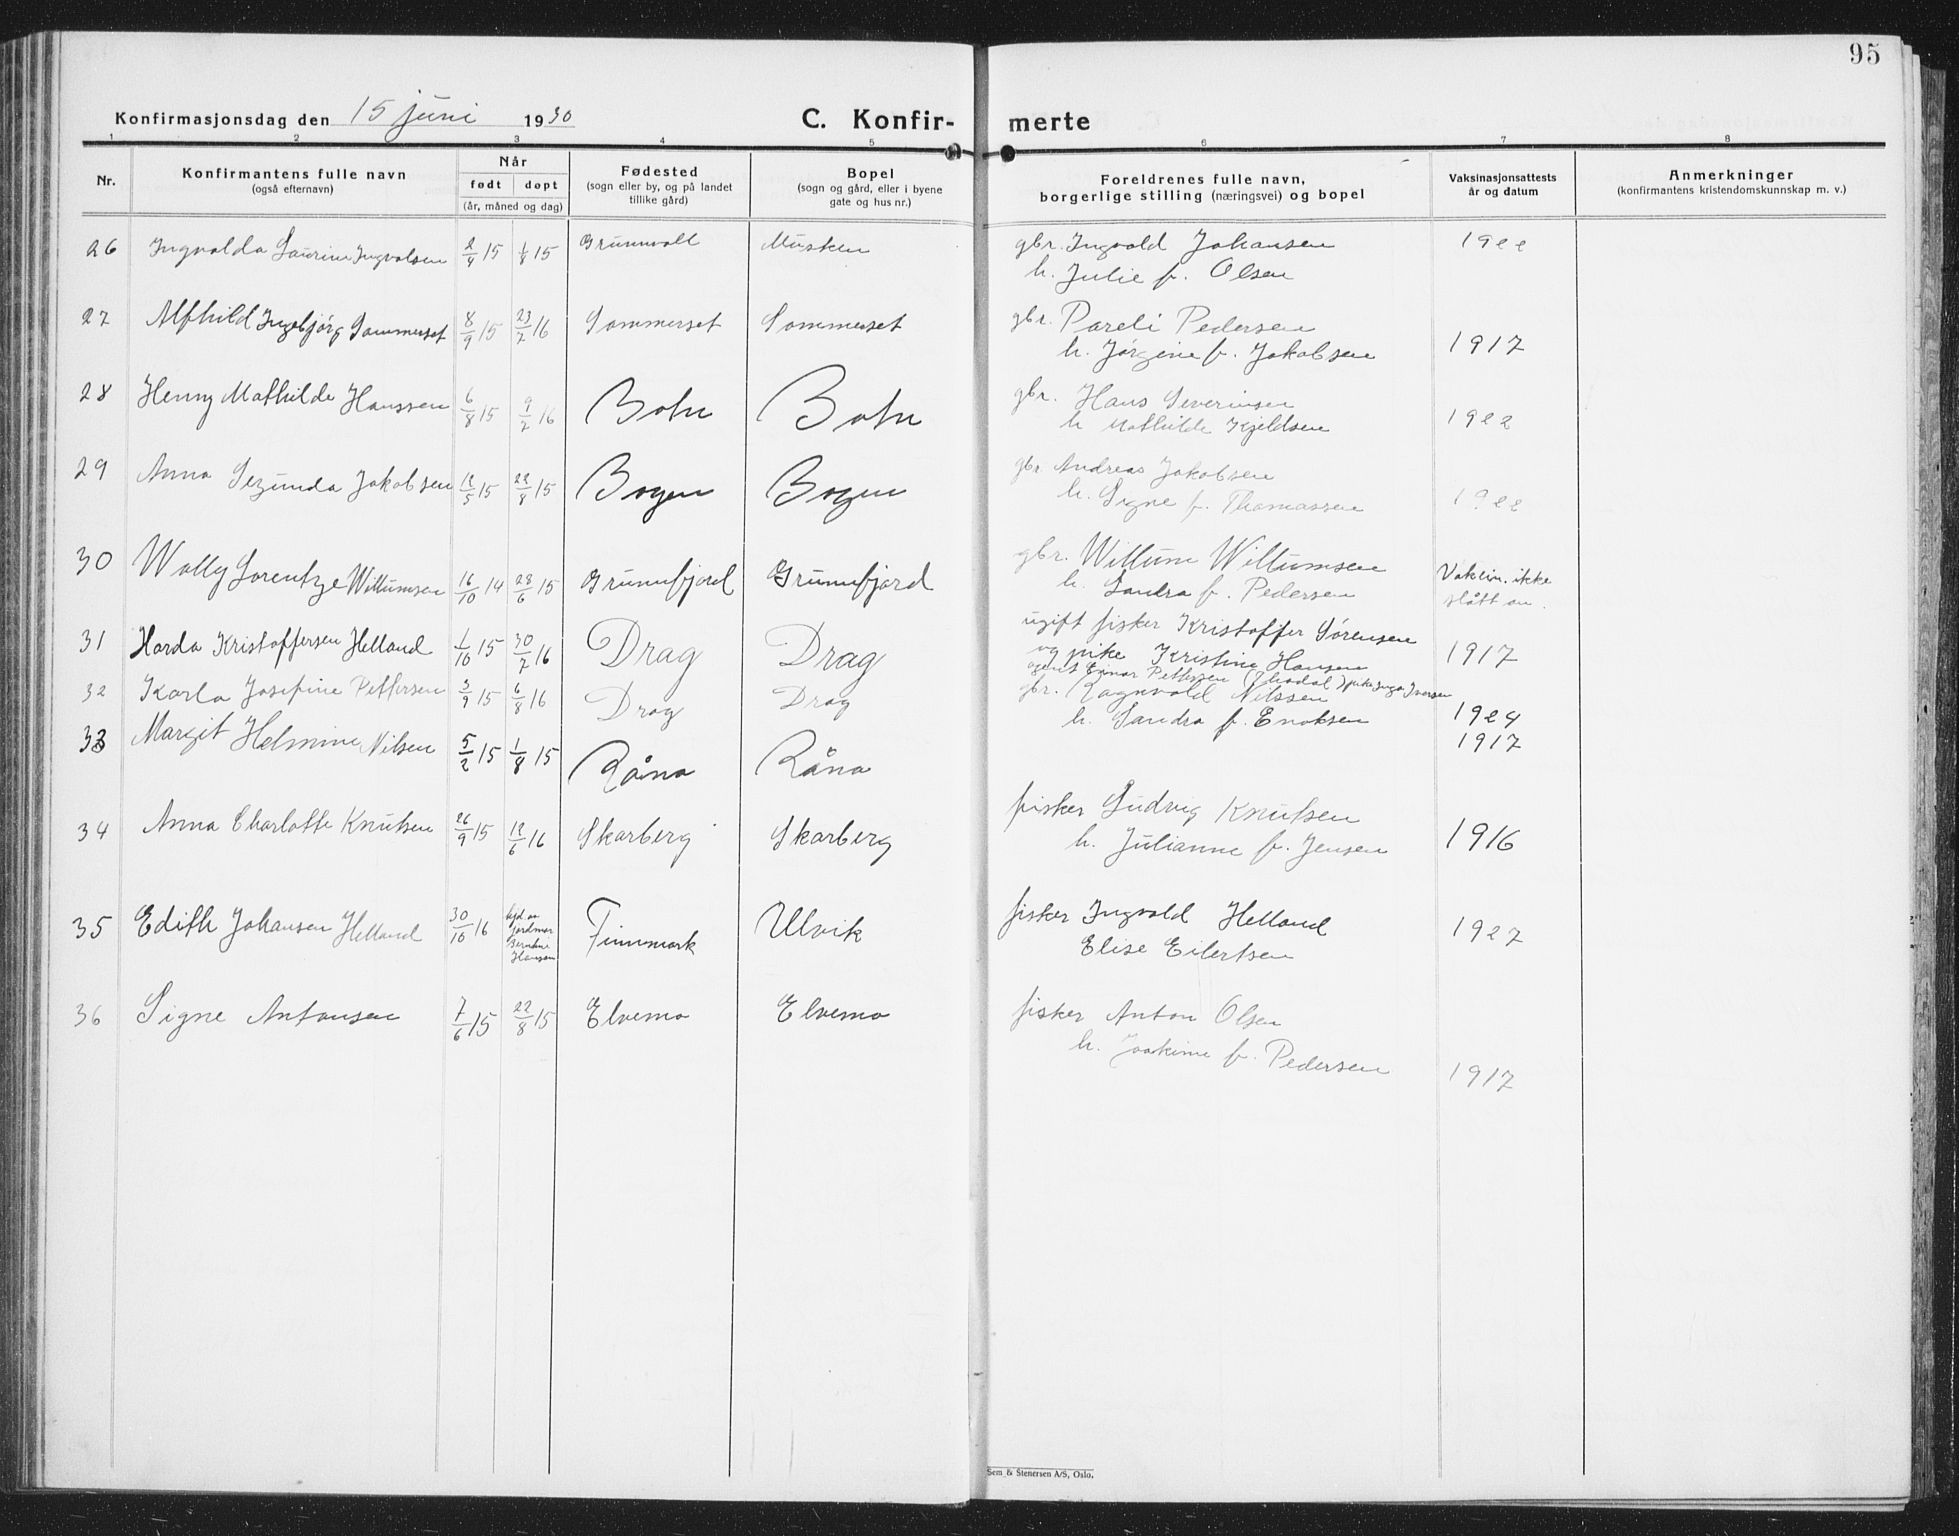 95
Konfirmasjonsdag den 15 juni 1930
C. Konfir- merte
1 2 3 4 5 6 7 8
Nr.
Konfirmantens fulle navn
(også efternavn)
Når
født døpt
(år, måned og dag)
Fødested
(sogn eller by, og på landet
tillike gård)
Bopel
(sogn og gård, eller i byene
gate og hus nr.)
Foreldrenes fulle navn,
borgerlige stilling (næringsvei) og bopel
Vaksinasjonsattests
år og datum
Anmerkninger
(konfirmantens kristendomskunnskap m. v.)
26 Ingvalda Laurine Ingvalsen 2/4 15 1/8 15 Grunnvoll Musken gbr. Ingvald Johansen 1922
h. Julie f. Olsen
27 Alfhild Ingebjørg Sommerset 8/9 15 23/7 16 Sommerset Sommerset gbr. Pareli Pedersen
h. Jørgine f. Jakobsen 1917
28 Henny Mathilde Hanssen 6/8 15 9/2 16 Botn Botn gbr. Hans Severinsen
h Mathilde Kjeldsen 1922
29 Anna Segunda Jakobsen 12/5 15 22/8 15 Bogen Bogen gbr Andreas Jakobsen
h. Signe f. Thomassen 1922
30 Wally Lorentze Willumsen 16/10 14 28/6 15 Grunnfjord Grunnfjord gbr. Willum Willumsen
h. Sandra f. Pedersen Vaksin. ikke
slått an.
31 Harda Kristoffersen Helland 1/10 15 30/7 16 Drag Drag ugift fisker Kristoffer Sørensen
og pike Kristine Hansen 1917
32 Karla Josefine Pettersen 3/9 15 6/8 16 Drag Drag agent Einar Pettersen pike Inga Iversen
1924
33 Margit Helmine Nilsen 5/2 15 1/8 15 Råna Råna gbr. Ragnvald Nilssen
h. Sandra f. Enoksen
1917
34 Anna Charlotte Knutsen 26/9 15 12/6 16 Skarberg Skarberg fisker Ludvig Knutsen
h. Julianne f. Jensen 1916
35 Edith Johansen Helland 30/10 16 hjd. av
jordmor
Hansen Finnmark Ulvik fisker Ingvald Helland
Elise Eilertsen 1927
36 Signe Antonsen 7/6 15 22/8 15 Elvemo Elvemo fisker Anton Olsen
h. Joakime f. Pedersen 1917
Sem & Stenersen A/S, Oslo.